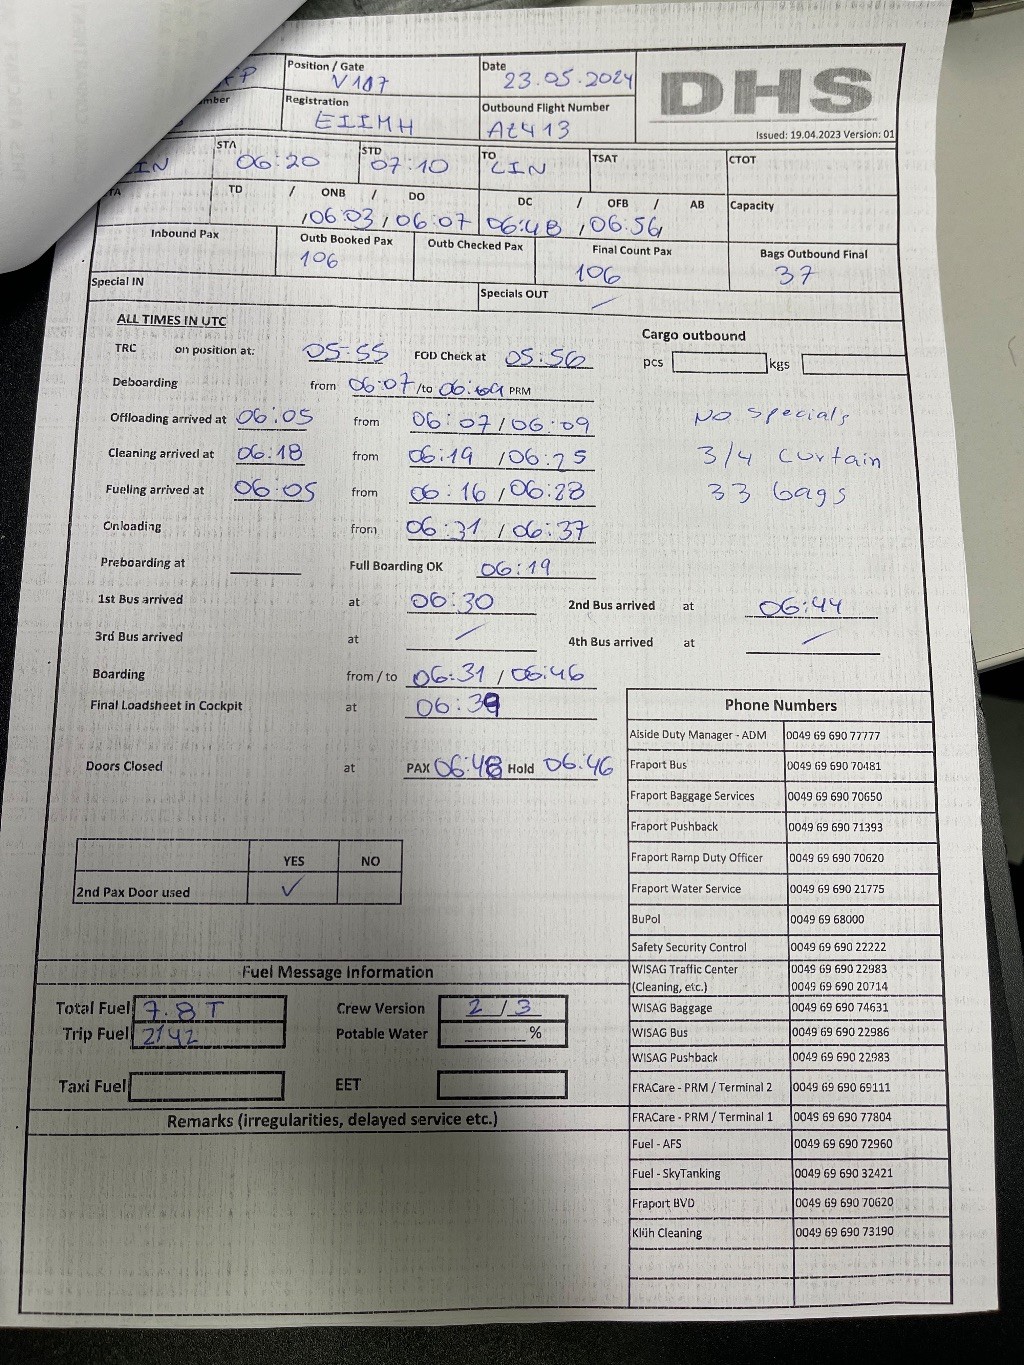 Position / Gate
V107
Date
23.05.2024
DHS
Issued: 19.04.2023 Version: 01
mber
Registration
EIIMH
Outbound Flight Number
AZ413
IN
STA
06:20
STD
07:10
TO
LIN
TSAT
CTOT
TD / ONB / DO
/06:03 / 06:07
DC / OFB / AB
06:48 / 06:56
Capacity
Inbound Pax
Outb Booked Pax
106
Outb Checked Pax
Final Count Pax
106
Bags Outbound Final
37
Special IN
Specials OUT /
ALL TIMES IN UTC
TRC on position at: 05:55 FOD Check at 05:56
Cargo outbound
pcs kgs
Deboarding from 06:07 /to 06:09 PRM
Offloading arrived at 06:05 from 06:07 / 06:09
No specials
Cleaning arrived at 06:18 from 06:19 / 06:25
3/4 curtain
Fueling arrived at 06:05 from 06:16 / 06:28
33 bags
Onloading from 06:31 / 06:37
Preboarding at Full Boarding OK 06:19
1st Bus arrived at 06:30 2nd Bus arrived at 06:44
3rd Bus arrived at / 4th Bus arrived at /
Boarding from / to 06:31 / 06:46
Final Loadsheet in Cockpit at 06:39
Doors Closed at PAX 06:48 Hold 06:46
YES NO
2nd Pax Door used ✓
Fuel Message Information
Total Fuel 7.8T
Crew Version 2 / 3
Trip Fuel 2142
Potable Water %
Taxi Fuel
EET
Remarks (irregularities, delayed service etc.)
Phone Numbers
Aiside Duty Manager - ADM 0049 69 690 77777
Fraport Bus 0049 69 690 70481
Fraport Baggage Services 0049 69 690 70650
Fraport Pushback 0049 69 690 71393
Fraport Ramp Duty Officer 0049 69 690 70620
Fraport Water Service 0049 69 690 21775
BuPol 0049 69 68000
Safety Security Control 0049 69 690 22222
WISAG Traffic Center 0049 69 690 22983
(Cleaning, etc.) 0049 69 690 20714
WISAG Baggage 0049 69 690 74631
WISAG Bus 0049 69 690 22986
WISAG Pushback 0049 69 690 22983
FRACare - PRM / Terminal 2 0049 69 690 69111
FRACare - PRM / Terminal 1 0049 69 690 77804
Fuel - AFS 0049 69 690 72960
Fuel - SkyTanking 0049 69 690 32421
Fraport BVD 0049 69 690 70620
Klüh Cleaning 0049 69 690 73190